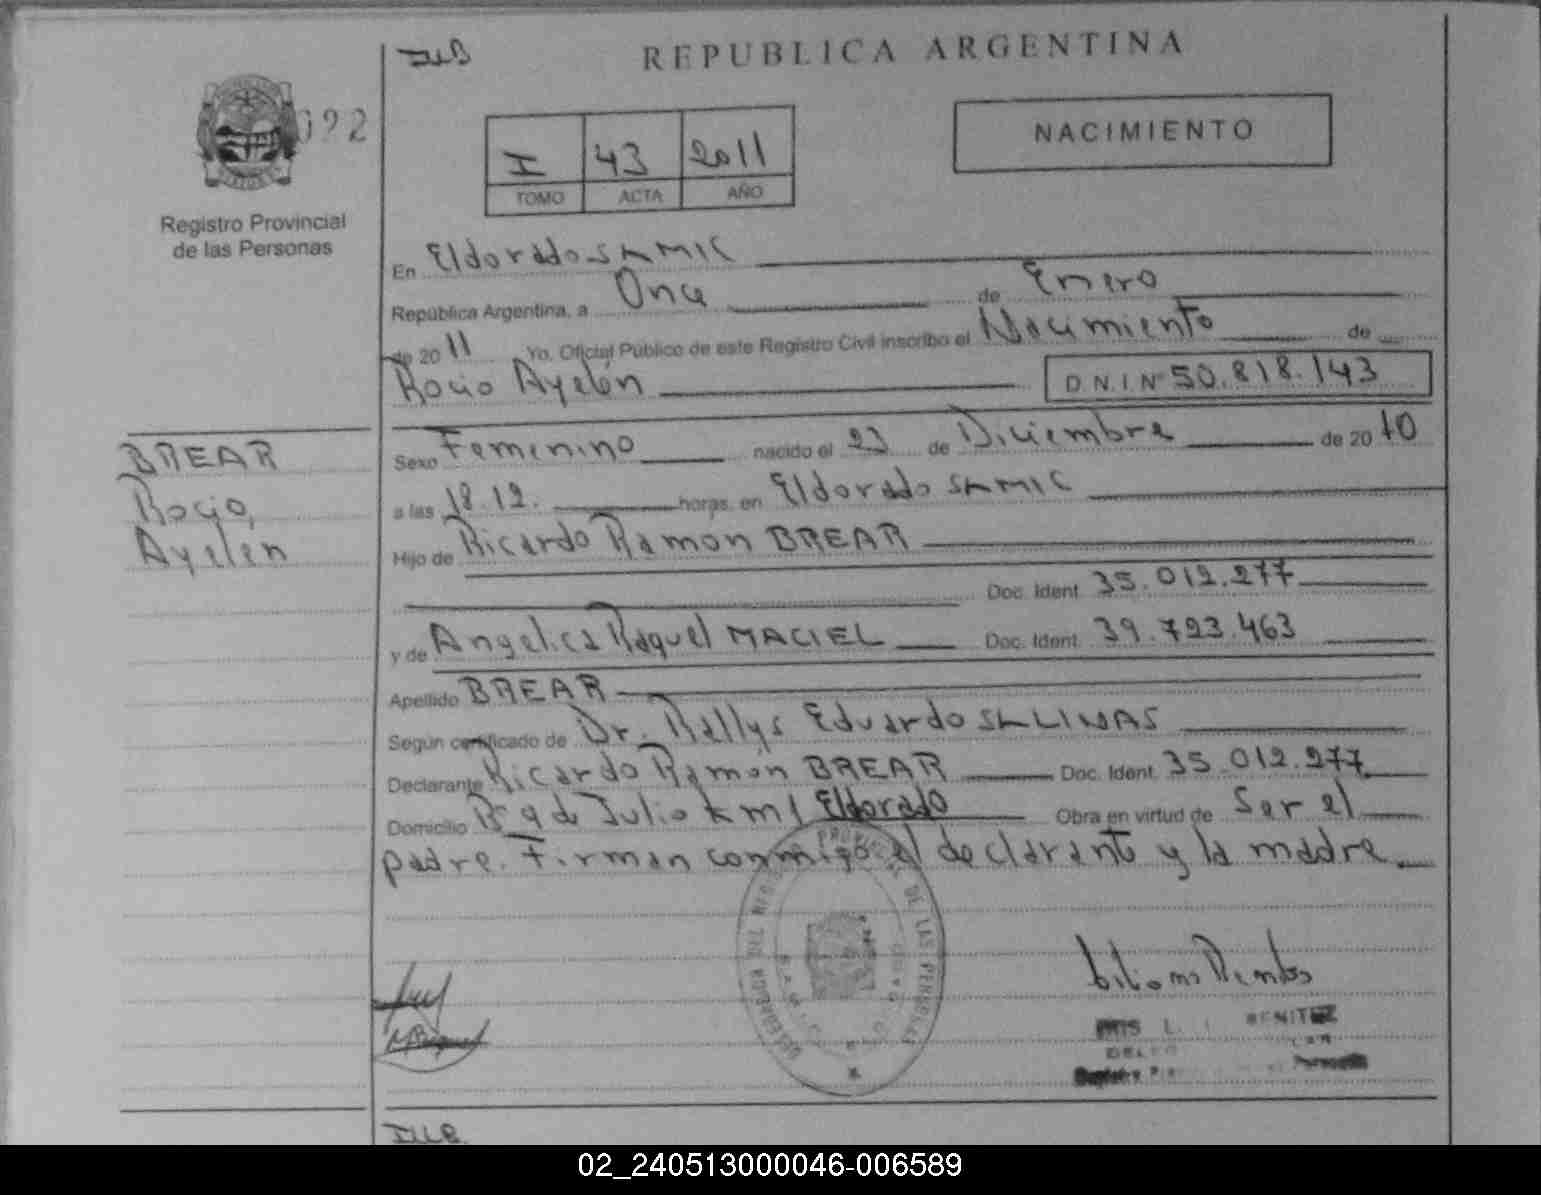 REPUBLICA ARGENTINA
NACIMIENTO
I 43 2011
TOMO ACTA AÑO
Registro Provincial
de las Personas
En Eldorado SAMIC
República Argentina, a Once de Enero
de 2011 Yo, Oficial Público de este Registro Civil inscribo el Nacimiento de
Rocio Ayelén D.N.I Nº 50.818.143
BREAR
Rocio,
Ayelen
Sexo Femenino nacido el 23 de Diciembre de 2010
a las 18.12. horas, en Eldorado SAMIC
Hijo de Ricardo Ramon BREAR
Doc. Ident. 35.012.277
y de Angelica Raquel MACIEL Doc. Ident. 39.723.463
Apellido BREAR
Según certificado de Dr. Rallys Eduardo SALINAS
Declarante Ricardo Ramón BREAR Doc. Ident. 35.012.277
Domicilio Bº 9 de Julio km 1 Eldorado Obra en virtud de Ser el
padre. Firman conmigo el declarante y la madre
BENITEZ
02_240513000046-006589